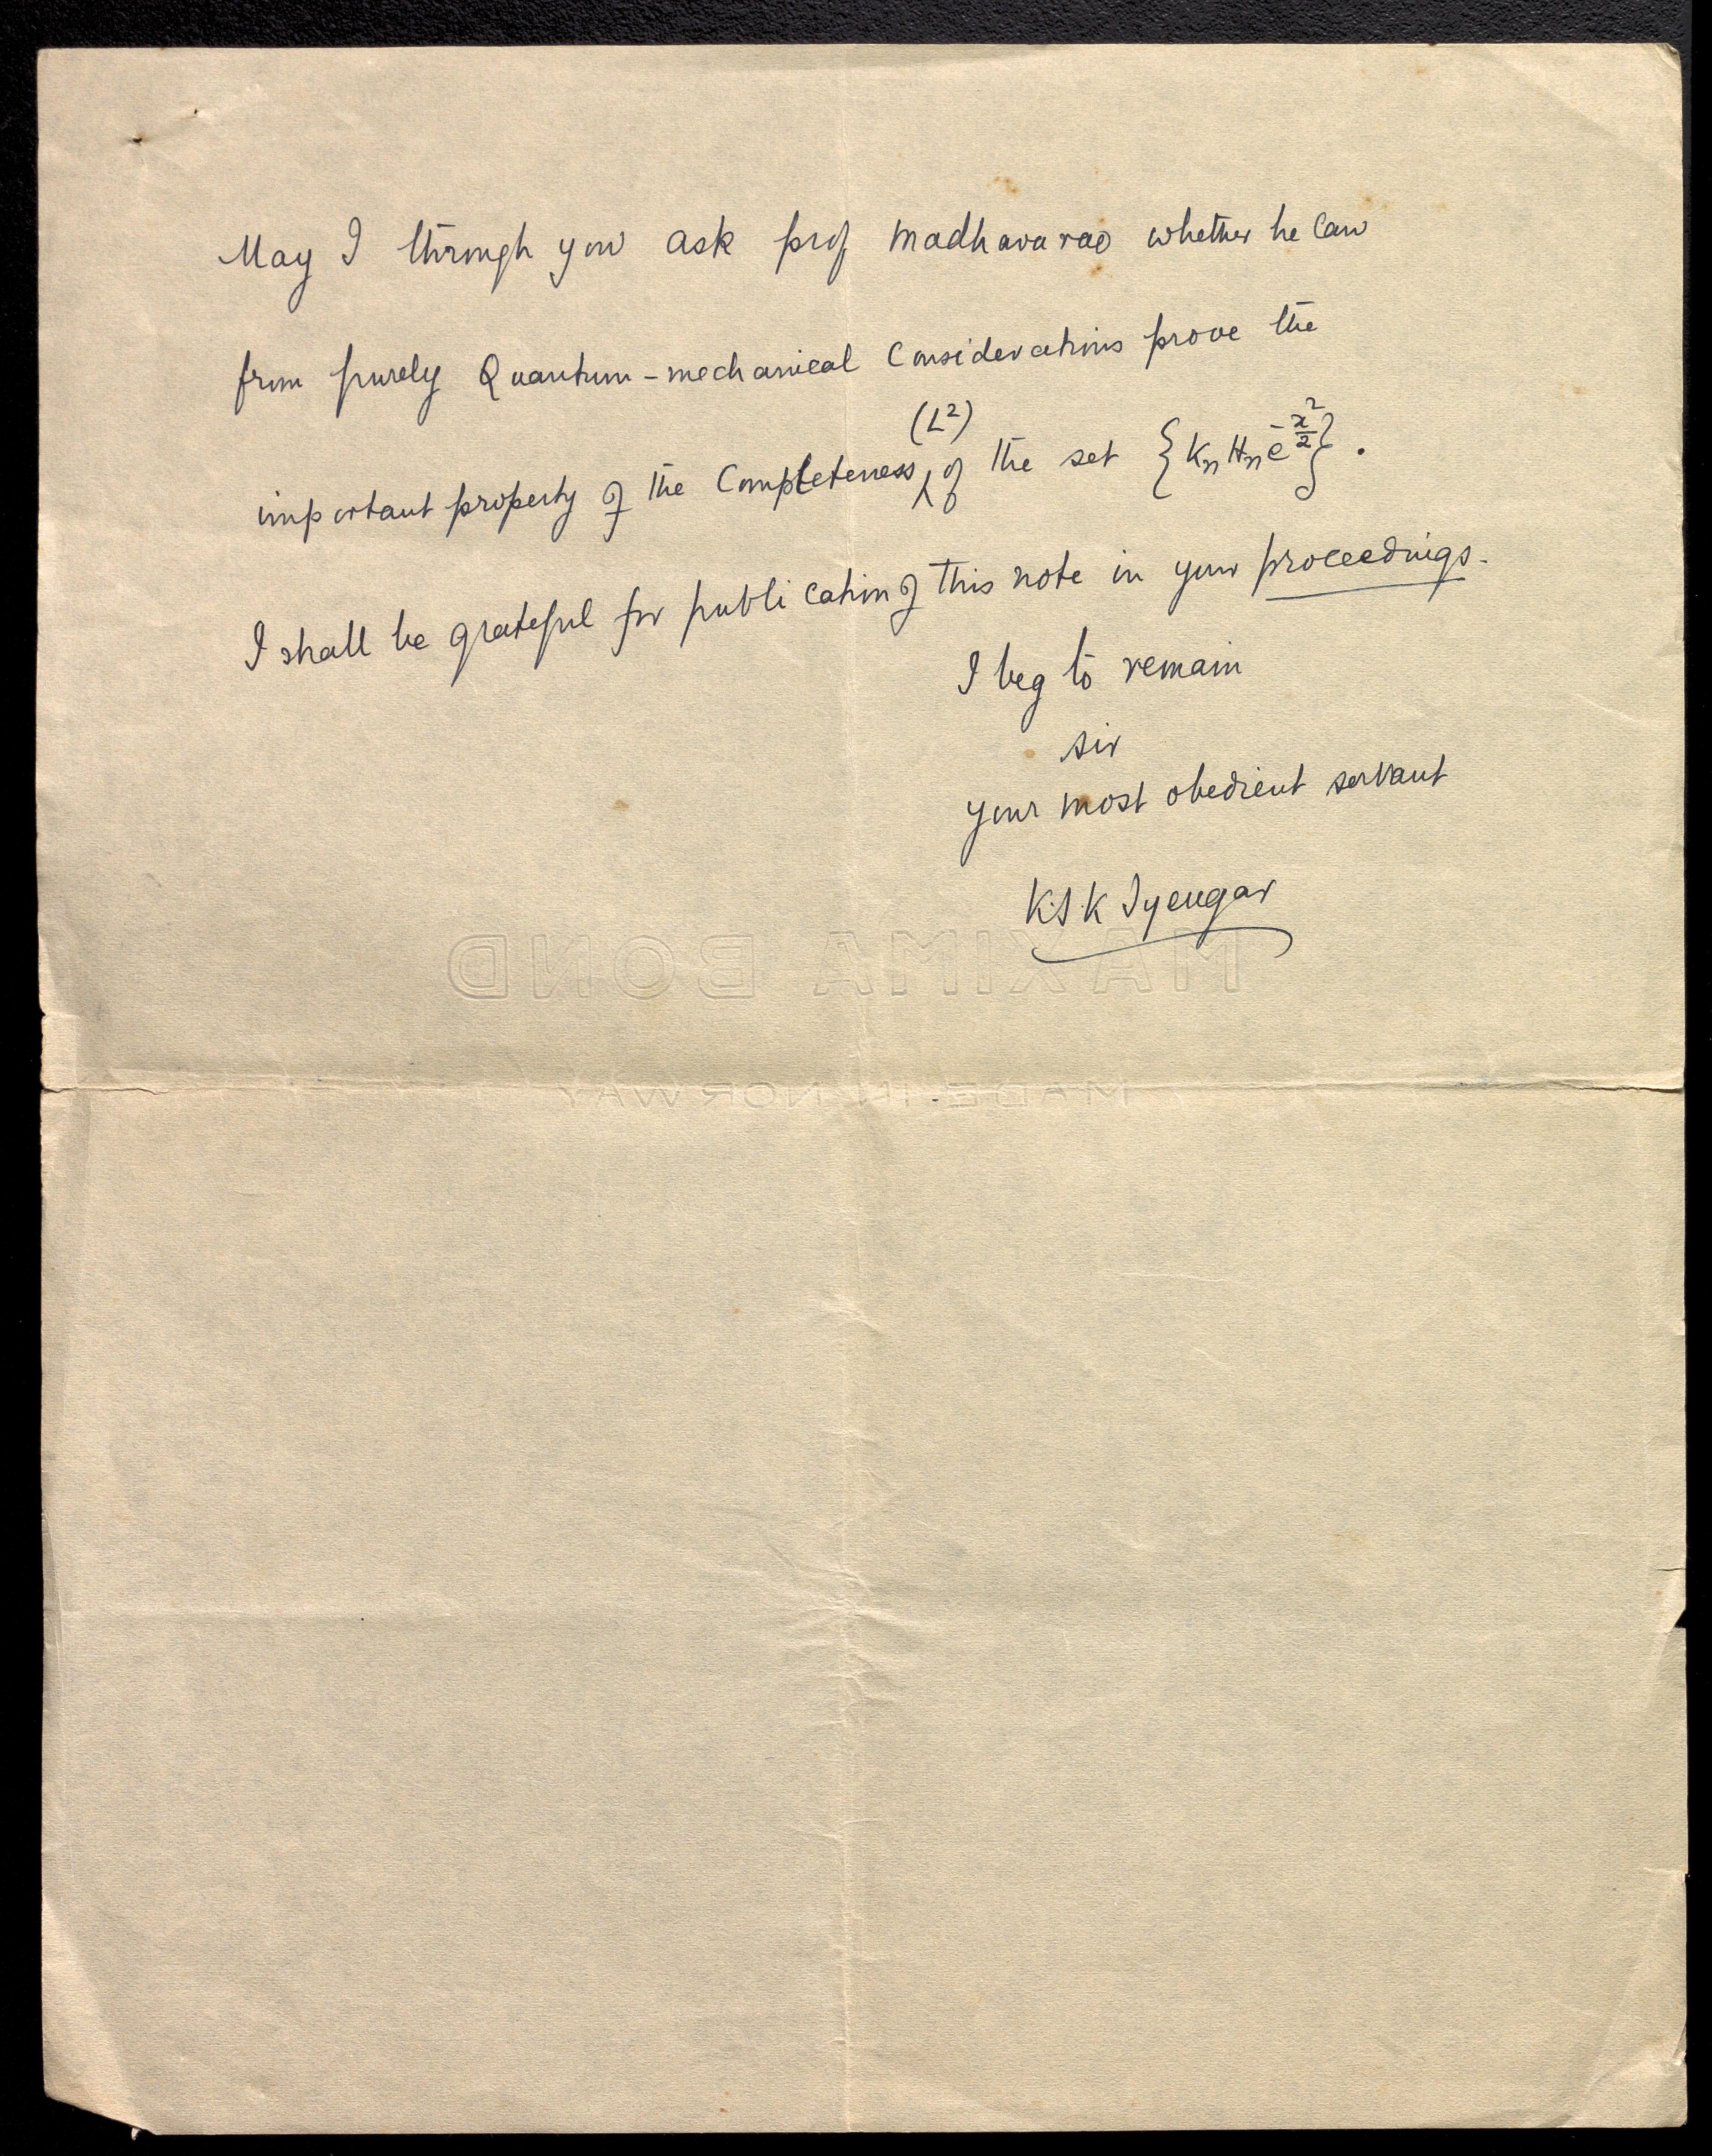 May I through you ask prof Madhavarao whether he can
from purely Quantum-mechanical Considerations prove the
important property of the Completeness (L²) of the set {KₙHₙe^-x²/2}.
I shall be grateful for publication of this note in your proceedings.
I beg to remain
sir
your most obedient servant
K.S.K Iyengar
MAXIMA BOND
MADE IN NORWAY